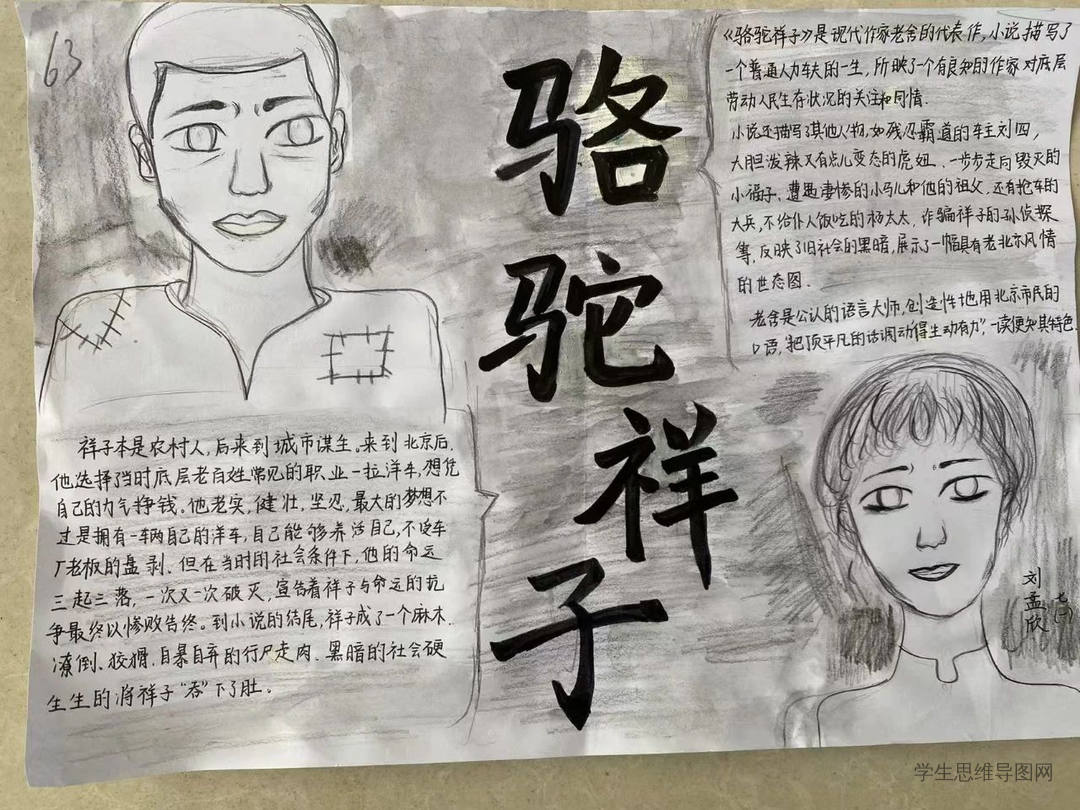 63
骆
驼
祥
子
《骆驼祥子》是现代作家老舍的代表作,小说描写了
一个普通人力车夫的一生,所映了一个有良知的作家对底层
劳动人民生存状况的关注和同情.
小说还描写了其他人物,如残忍霸道的车主刘四,
大胆泼辣又有点儿变态的虎妞,一步步走向毁灭的
小福子、遭遇凄惨的小马儿和他的祖父.还有抢车的
大兵,不给仆人饭吃的杨太太,诈骗祥子的孙侦探
等,反映了旧社会的黑暗,展示了一幅具有老北京风情
的世态图.
老舍是公认的语言大师,创造性地用北京市民的
口语,"把顶平凡的话调动得生动有力",一读便知其特色.
祥子本是农村人,后来到城市谋生。来到北京后,
他选择了当时底层老百姓常见的职业—拉洋车,想凭
自己的力气挣钱。他老实,健壮,坚忍,最大的梦想不
过是拥有一车两自己的洋车,自己能够养活自己,不受车
厂老板的盘剥.但在当时的社会条件下,他的命运
三起三落,一次又一次破灭,宣告着祥子与命运的抗
争最终以惨败告终。到小说的结尾,祥子成了一个麻木.
潦倒、狡猾、自暴自弃的行尸走肉.黑暗的社会硬
生生的将祥子"吞"下了肚。
刘孟欣
学生思维导图网